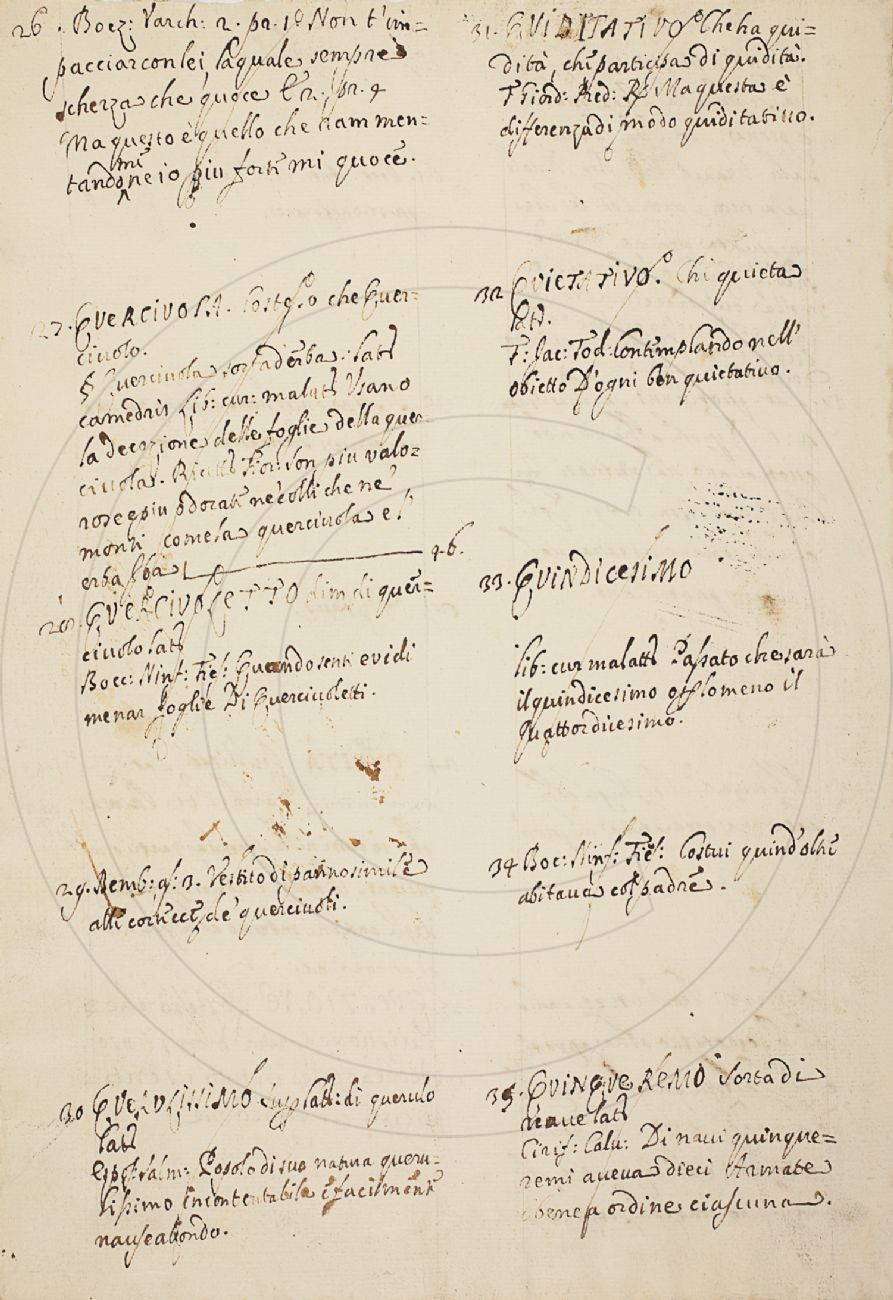 26. Boez: Varch: 2. pr. 1. Non t'im=
pacciar con lei, la quale sempre
scherza che quoce E 2. pr. 4
Ma questo è quello che rammen=
mi
tandone io più forte mi quoce.
27. QVERCIVOLA. Lo stesso che Quer=
ciuolo.
§ Querciuola sorta d'erba. lat
camedrio Lib: cur: malatt Usano
la decozione delle foglie della quer=
ciuola. Ricett Fior: son più valo=
rose e più odorate ne' colli che ne'
monti come la querciuola e l'
erba Iva 4.6.
28. QVERCIVOLETTO dim di quer=
ciuolo lat
Bocc: Ninf: Fies: Quando sentì e vidi
menar foglie Di Querciuoletti.
29. Bemb: 3. Vestito di panno simile
alle cortecce de' querciuoli.
30 QVERVLISSIMO Superlatt: di querulo
latt
Espos Salm: Popolo di sua natura queru=
lissimo incontentabile e facilmente
nauseabondo.
31. QVIDITATIVO Che ha qui=
dità, che participa di quidità.
F Giord: Pred: R Ma questa è
differenza di modo quiditativo.
32 QVIETATIVO. Chi quieta
latt.
F: Jac: Tod: Contemplando nell'
obietto D'ogni ben quietativo.
33. QVINDICESIMO
lib: cur malatt Passato che sarà
il quindicesimo o almeno il
quattordicesimo.
34 Boc: Ninf: Fies: Costui quind'oltre
abitava col padre.
35. QVINQVEREMO Sorta di
nave latt
Cirif: Calu: Di navi quinque=
remi aueua dieci Armate
bene a ordine ciascuna.